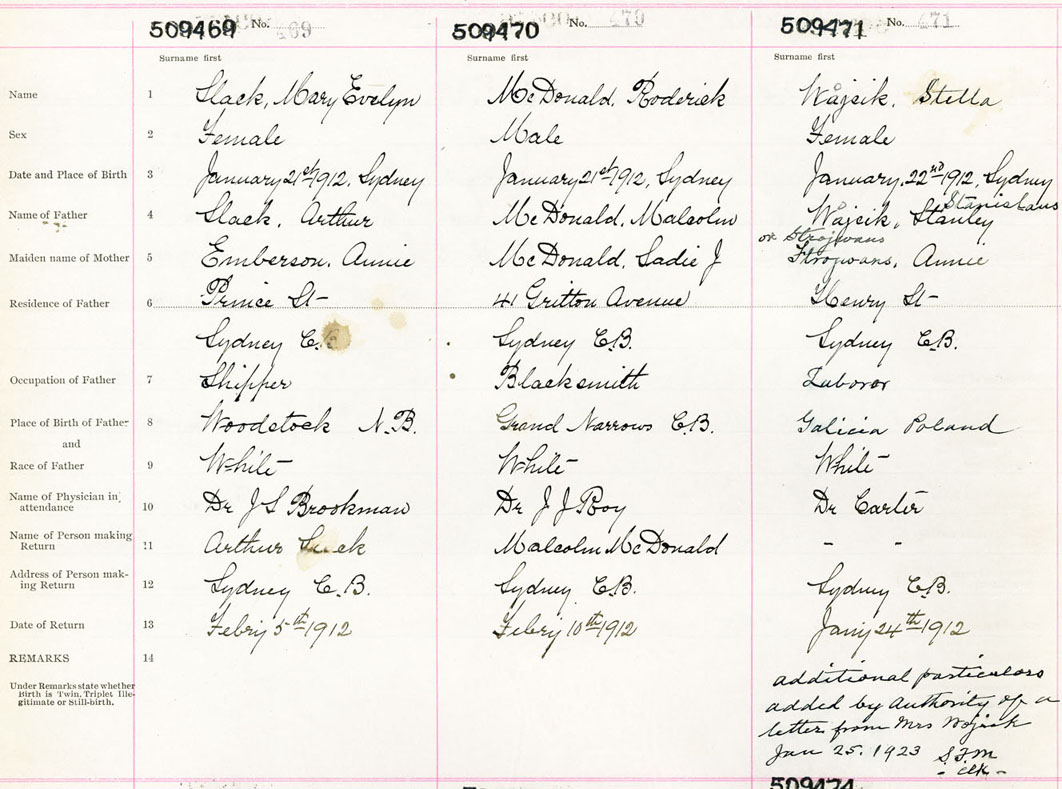 509469 No. 469 509470 No. 470 509471 No. 471
Surname first Surname first Surname first
Name 1 Slack, Mary Evelyn McDonald, Roderick Wajsik, Stella
Sex 2 Female Male Female
Date and Place of Birth 3 January 21st 1912, Sydney January 21st 1912, Sydney January, 22nd 1912, Sydney
Stanislaus
Name of Father 4 Slack, Arthur McDonald, Malcolm Wajsik, Stanley
or Strojwans
Maiden name of Mother 5 Emberson, Annie McDonald, Sadie J Strojwans, Annie
Residence of Father 6 Prince St 41 Gritton Avenue Henry St
Sydney C. Sydney C.B. Sydney C.B.
Occupation of Father 7 Shipper Blacksmith Laboror
Place of Birth of Father 8 Woodstock N.B. Grand Narrows C.B. Galicia Poland
and
Race of Father 9 White White White
Name of Physician in
attendance 10 Dr J S Brookman Dr J J Roy Dr Carter
Name of Person making
Return 11 Arthur Slack Malcolm McDonald - -
Address of Person mak-
ing Return 12 Sydney C.B. Sydney C.B. Sydney C.B.
Date of Return 13 Febry 5th 1912 Febry 10th 1912 Jany 24th 1912
REMARKS 14
Under Remarks state whether
Birth is Twin, Triplet Ille-
gitimate or Still-birth.
additional particulars
added by Authority of a
letter from Mrs Wojsik
Jan 25. 1923 S.F.M
- clk -
509474